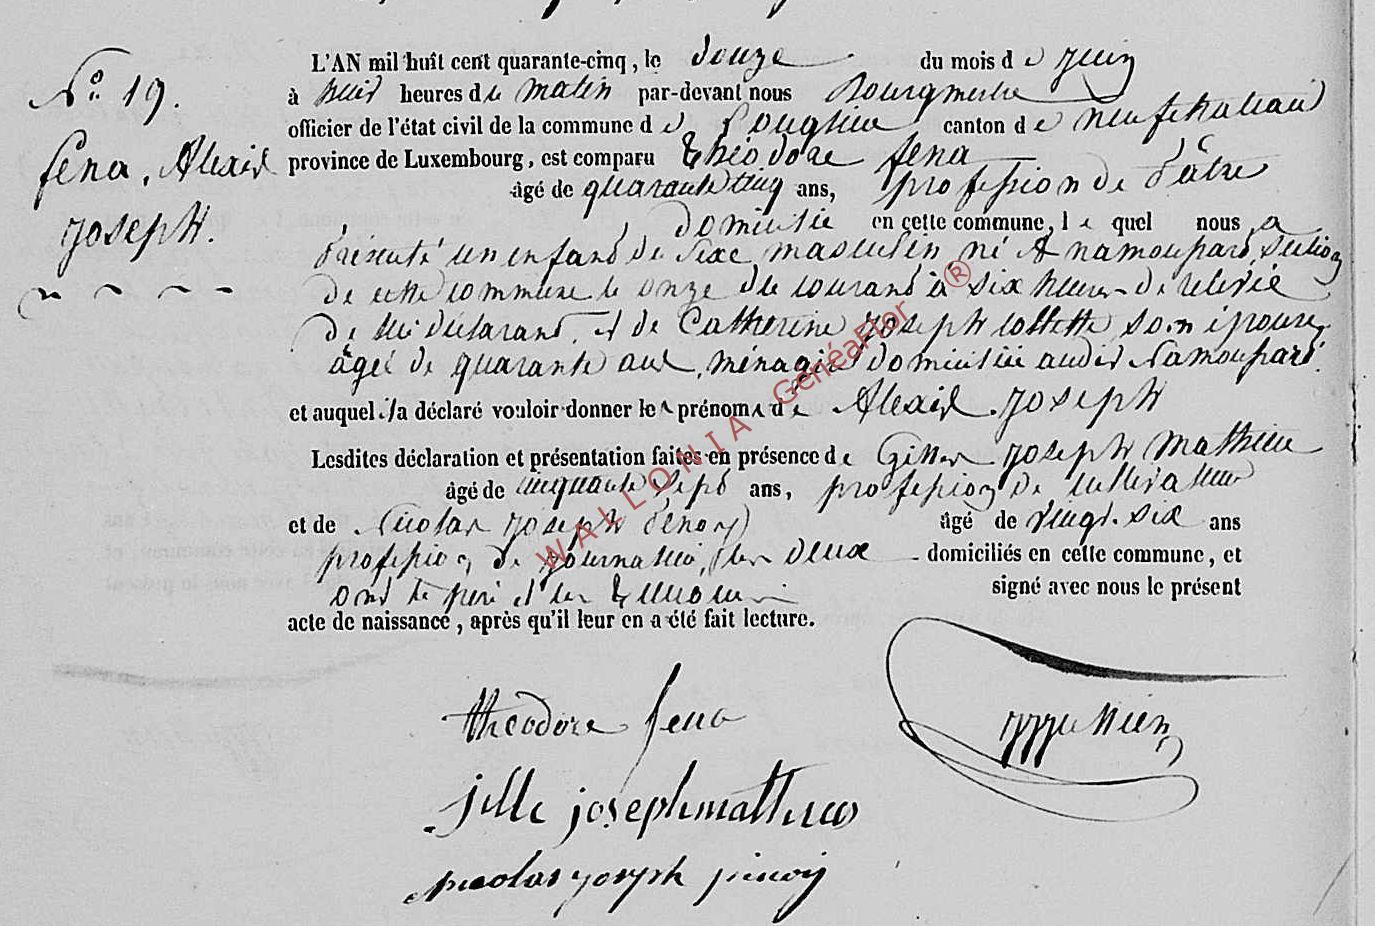 N° 19.
fena, Alexis
joseph.
L'AN mil huit cent quarante-cinq, le douze du mois de juin
à huit heures du matin par-devant nous Bourgmestre
officier de l'état civil de la commune de Longlier canton de neufchateau
province de Luxembourg, est comparu théodore fena
âgé de quarante cinq ans, profession de
domicilié en cette commune, lequel nous a
présenté un enfant de sexe masculin, né A namoupard, section
de cette commune le onze du courant à six heures de relevée
de lui déclarant, et de Catherine joseph collette son épouse,
âgée de quarante ans, ménagère domiciliée audit Namoupard.
et auquel il a déclaré vouloir donner les prénoms de Alexis joseph
Lesdites déclaration et présentation faites en présence de Gilles joseph mathieu
âgé de cinquante sept ans, profession de cultivateur
et de Nicolas joseph âgé de vingt-six ans
profession de journalier, les deux domiciliés en cette commune, et
ont le père et les témoins signé avec nous le présent
acte de naissance, après qu'il leur en a été fait lecture.
théodore fena
jille joseph mathieu
nicolas joseph
WALLONIA GénéaFlor ®